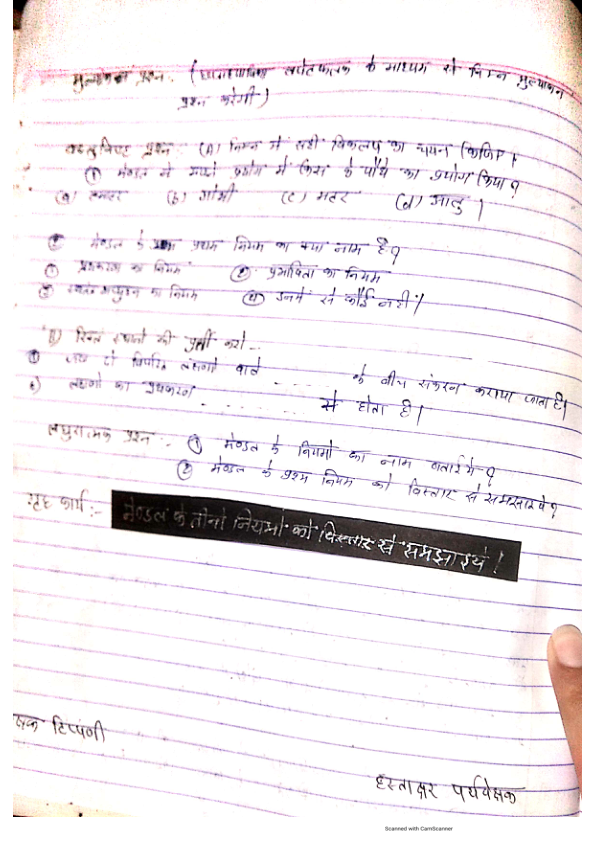 मुल्यांकन प्रश्न - (छात्राध्यापिका लपेटफलक के माध्यम से निम्न मुल्यांकन
प्रश्न करेगी)
वस्तुनिष्ट प्रश्न - (A) निम्न में सही विकल्प का चयन किजिए।
① मेण्डल ने अपने प्रयोग में किस के पौधे का प्रयोग किया?
(a) टमाटर (b) गोभी (c) मटर (d) आलु।
② मेण्डल के प्रथम नियम का क्या नाम है?
① प्रथक्करण का नियम ② प्रभाविता का नियम
③ स्वतंत्र अपव्युहन का नियम ④ उनमें से कोई नहीं।
(B) रिक्त स्थानों की पुर्ती करो --
① जब दो विपरित लक्षणों वाले - - - - के बीच संकरन कराया जाता है।
2) लक्षणों का प्रथक्करण - - - - - - - से होता है।
लघुरात्मक प्रश्न - ① मेण्डल के नियमों का नाम बताईये?
② मेण्डल के प्रथम नियम को विस्तार से समझाइये?
गृह कार्य :- मेण्डल के तीनों नियमों को विस्तार से समझाइये।
क्षक टिप्पणी
हस्ताक्षर पर्यवेक्षक
Scanned with CamScanner